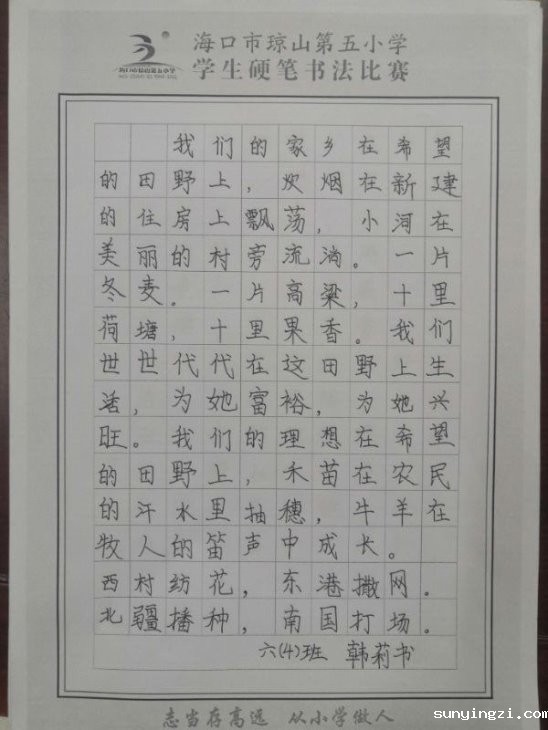 海口市琼山第五小学
学生硬笔书法比赛
海口市琼山第五小学
我们的家乡在希望
的田野上，炊烟在新建
的住房上飘荡，小河在
美丽的村旁流淌。一片
冬麦。一片高粱，十里
荷塘，十里果香。我们
世世代代在这田野上生
活，为她富裕，为她兴
旺。我们的理想在希望
的田野上，禾苗在农民
的汗水里抽穗，牛羊在
牧人的笛声中成长。
西村纺花，东港撒网。
北疆播种，南国打场。
六(4)班 韩莉书
志当存高远 从小学做人
sunyingzi.com